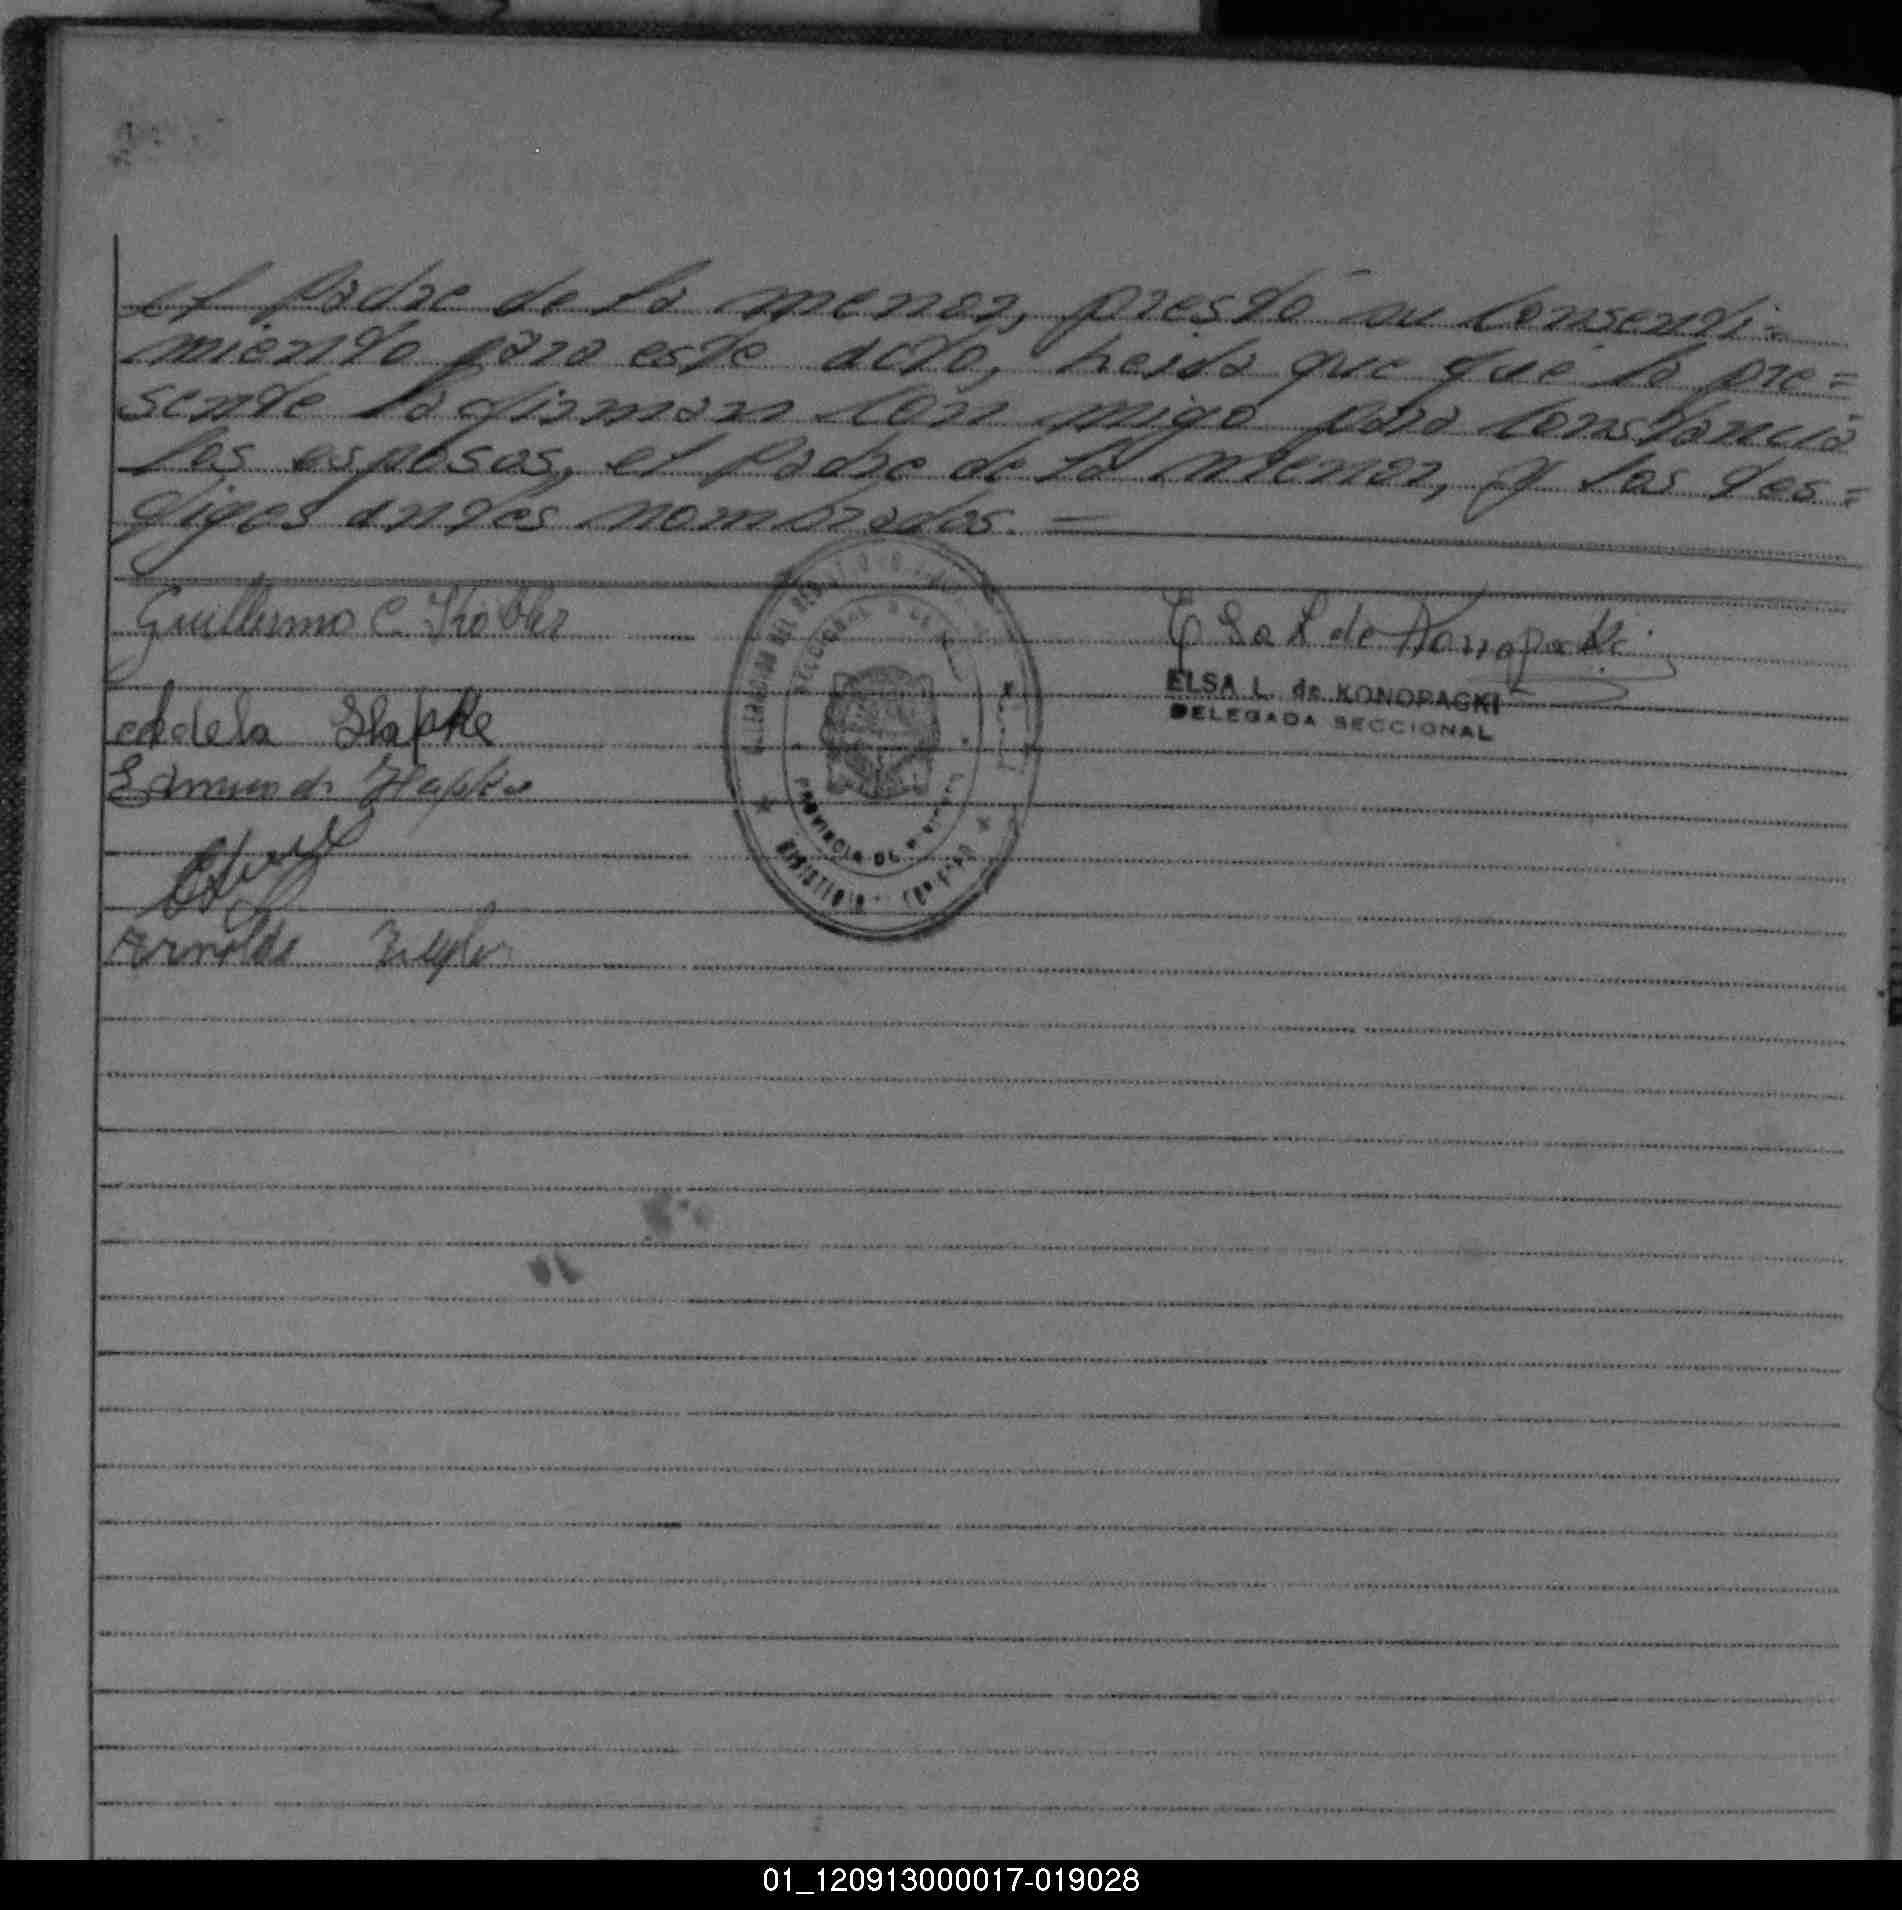 el padre de la menor, prestó su consenti=
miento para este acto, leida que que la pre=
sente la firman con migo para constancia
los esposos, el padre de la menor, y los tes=
tigos antes nombrados. =
Guillermo C.
Elsa L de Konopacki
ELSA L. de KONOPACKI
DELEGADA SECCIONAL
Adela
Arnoldo
PROVINCIA DE
01_120913000017-019028